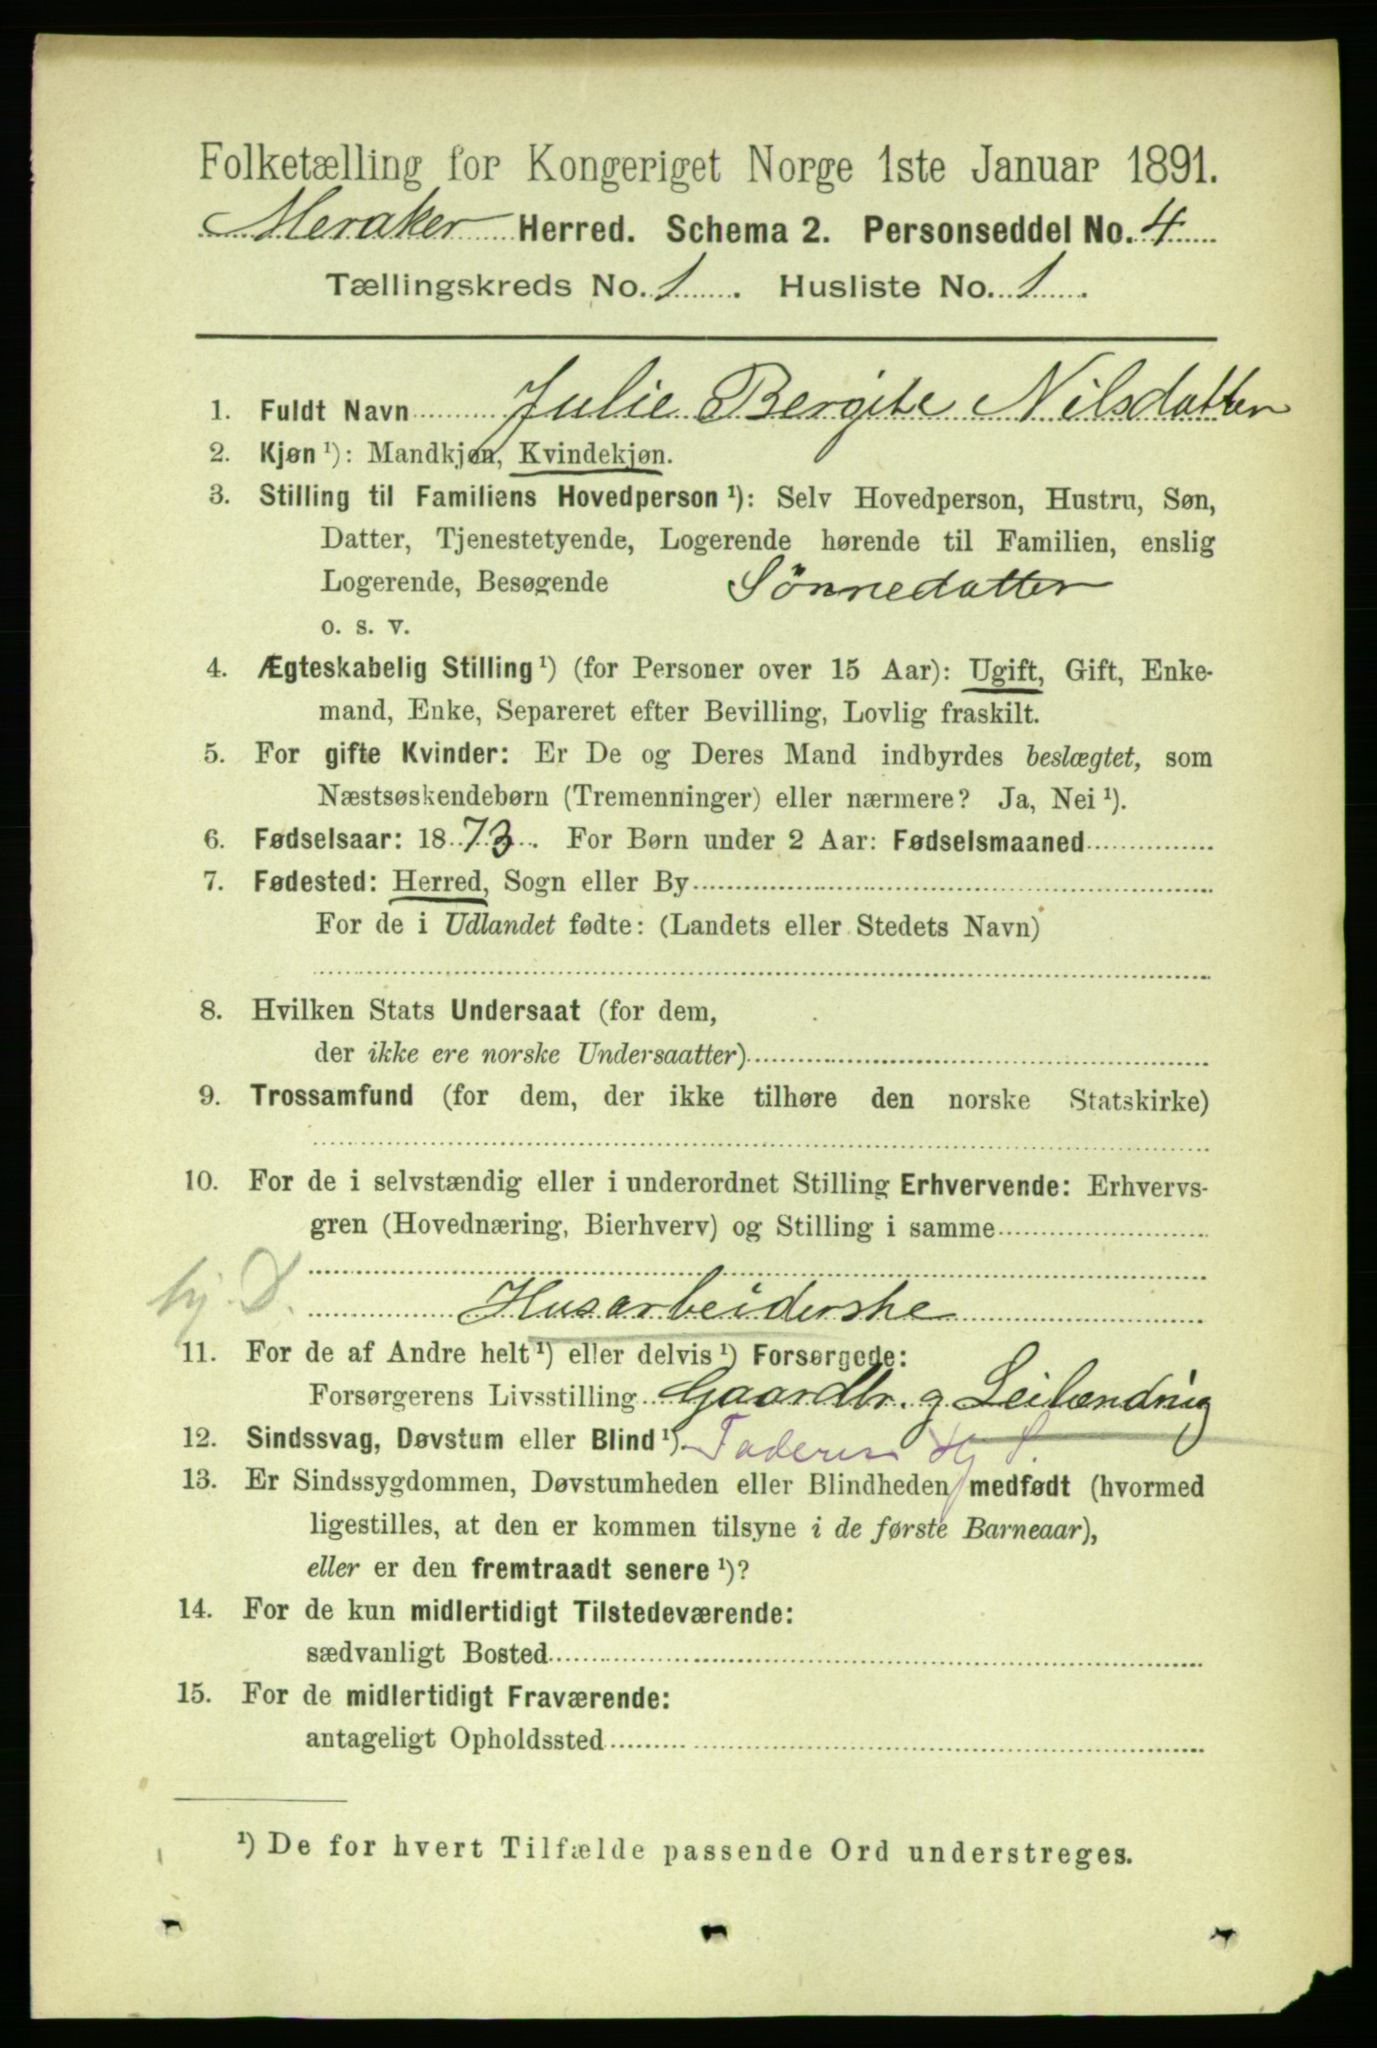 Folketælling for Kongeriget Norge 1ste Januar 1891.
Meraker Herred. Schema 2. Personseddel No. 4
Tællingskreds No. 1. Husliste No. 1.
1. Fuldt Navn Julie Bergite Nilsdatter
2. Kjøn ¹): Mandkjøn, Kvindekjøn.
3. Stilling til Familiens Hovedperson ¹): Selv Hovedperson, Hustru, Søn,
Datter, Tjenestetyende, Logerende hørende til Familien, enslig
Logerende, Besøgende Sönnedatter
o. s. v.
4. Ægteskabelig Stilling ¹) (for Personer over 15 Aar): Ugift, Gift, Enke-
mand, Enke, Separeret efter Bevilling, Lovlig fraskilt.
5. For gifte Kvinder: Er De og Deres Mand indbyrdes beslægtet, som
Næstsøskendebørn (Tremenninger) eller nærmere? Ja, Nei ¹).
6. Fødselsaar: 1873. For Børn under 2 Aar: Fødselsmaaned
7. Fødested: Herred, Sogn eller By
For de i Udlandet fødte: (Landets eller Stedets Navn)
8. Hvilken Stats Undersaat (for dem,
der ikke ere norske Undersaatter)
9. Trossamfund (for dem, der ikke tilhøre den norske Statskirke)
10. For de i selvstændig eller i underordnet Stilling Erhvervende: Erhvervs-
gren (Hovednæring, Bierhverv) og Stilling i samme
hj. D. Husarbeiderske
11. For de af Andre helt ¹) eller delvis ¹) Forsørgede:
Forsørgerens Livsstilling Gaardbr. g Leilænding
12. Sindssvag, Døvstum eller Blind ¹).
13. Er Sindssygdommen, Døvstumheden eller Blindheden medfødt (hvormed
ligestilles, at den er kommen tilsyne i de første Barneaar),
eller er den fremtraadt senere ¹)?
14. For de kun midlertidigt Tilstedeværende:
sædvanligt Bosted
15. For de midlertidigt Fraværende:
antageligt Opholdssted
¹) De for hvert Tilfælde passende Ord understreges.